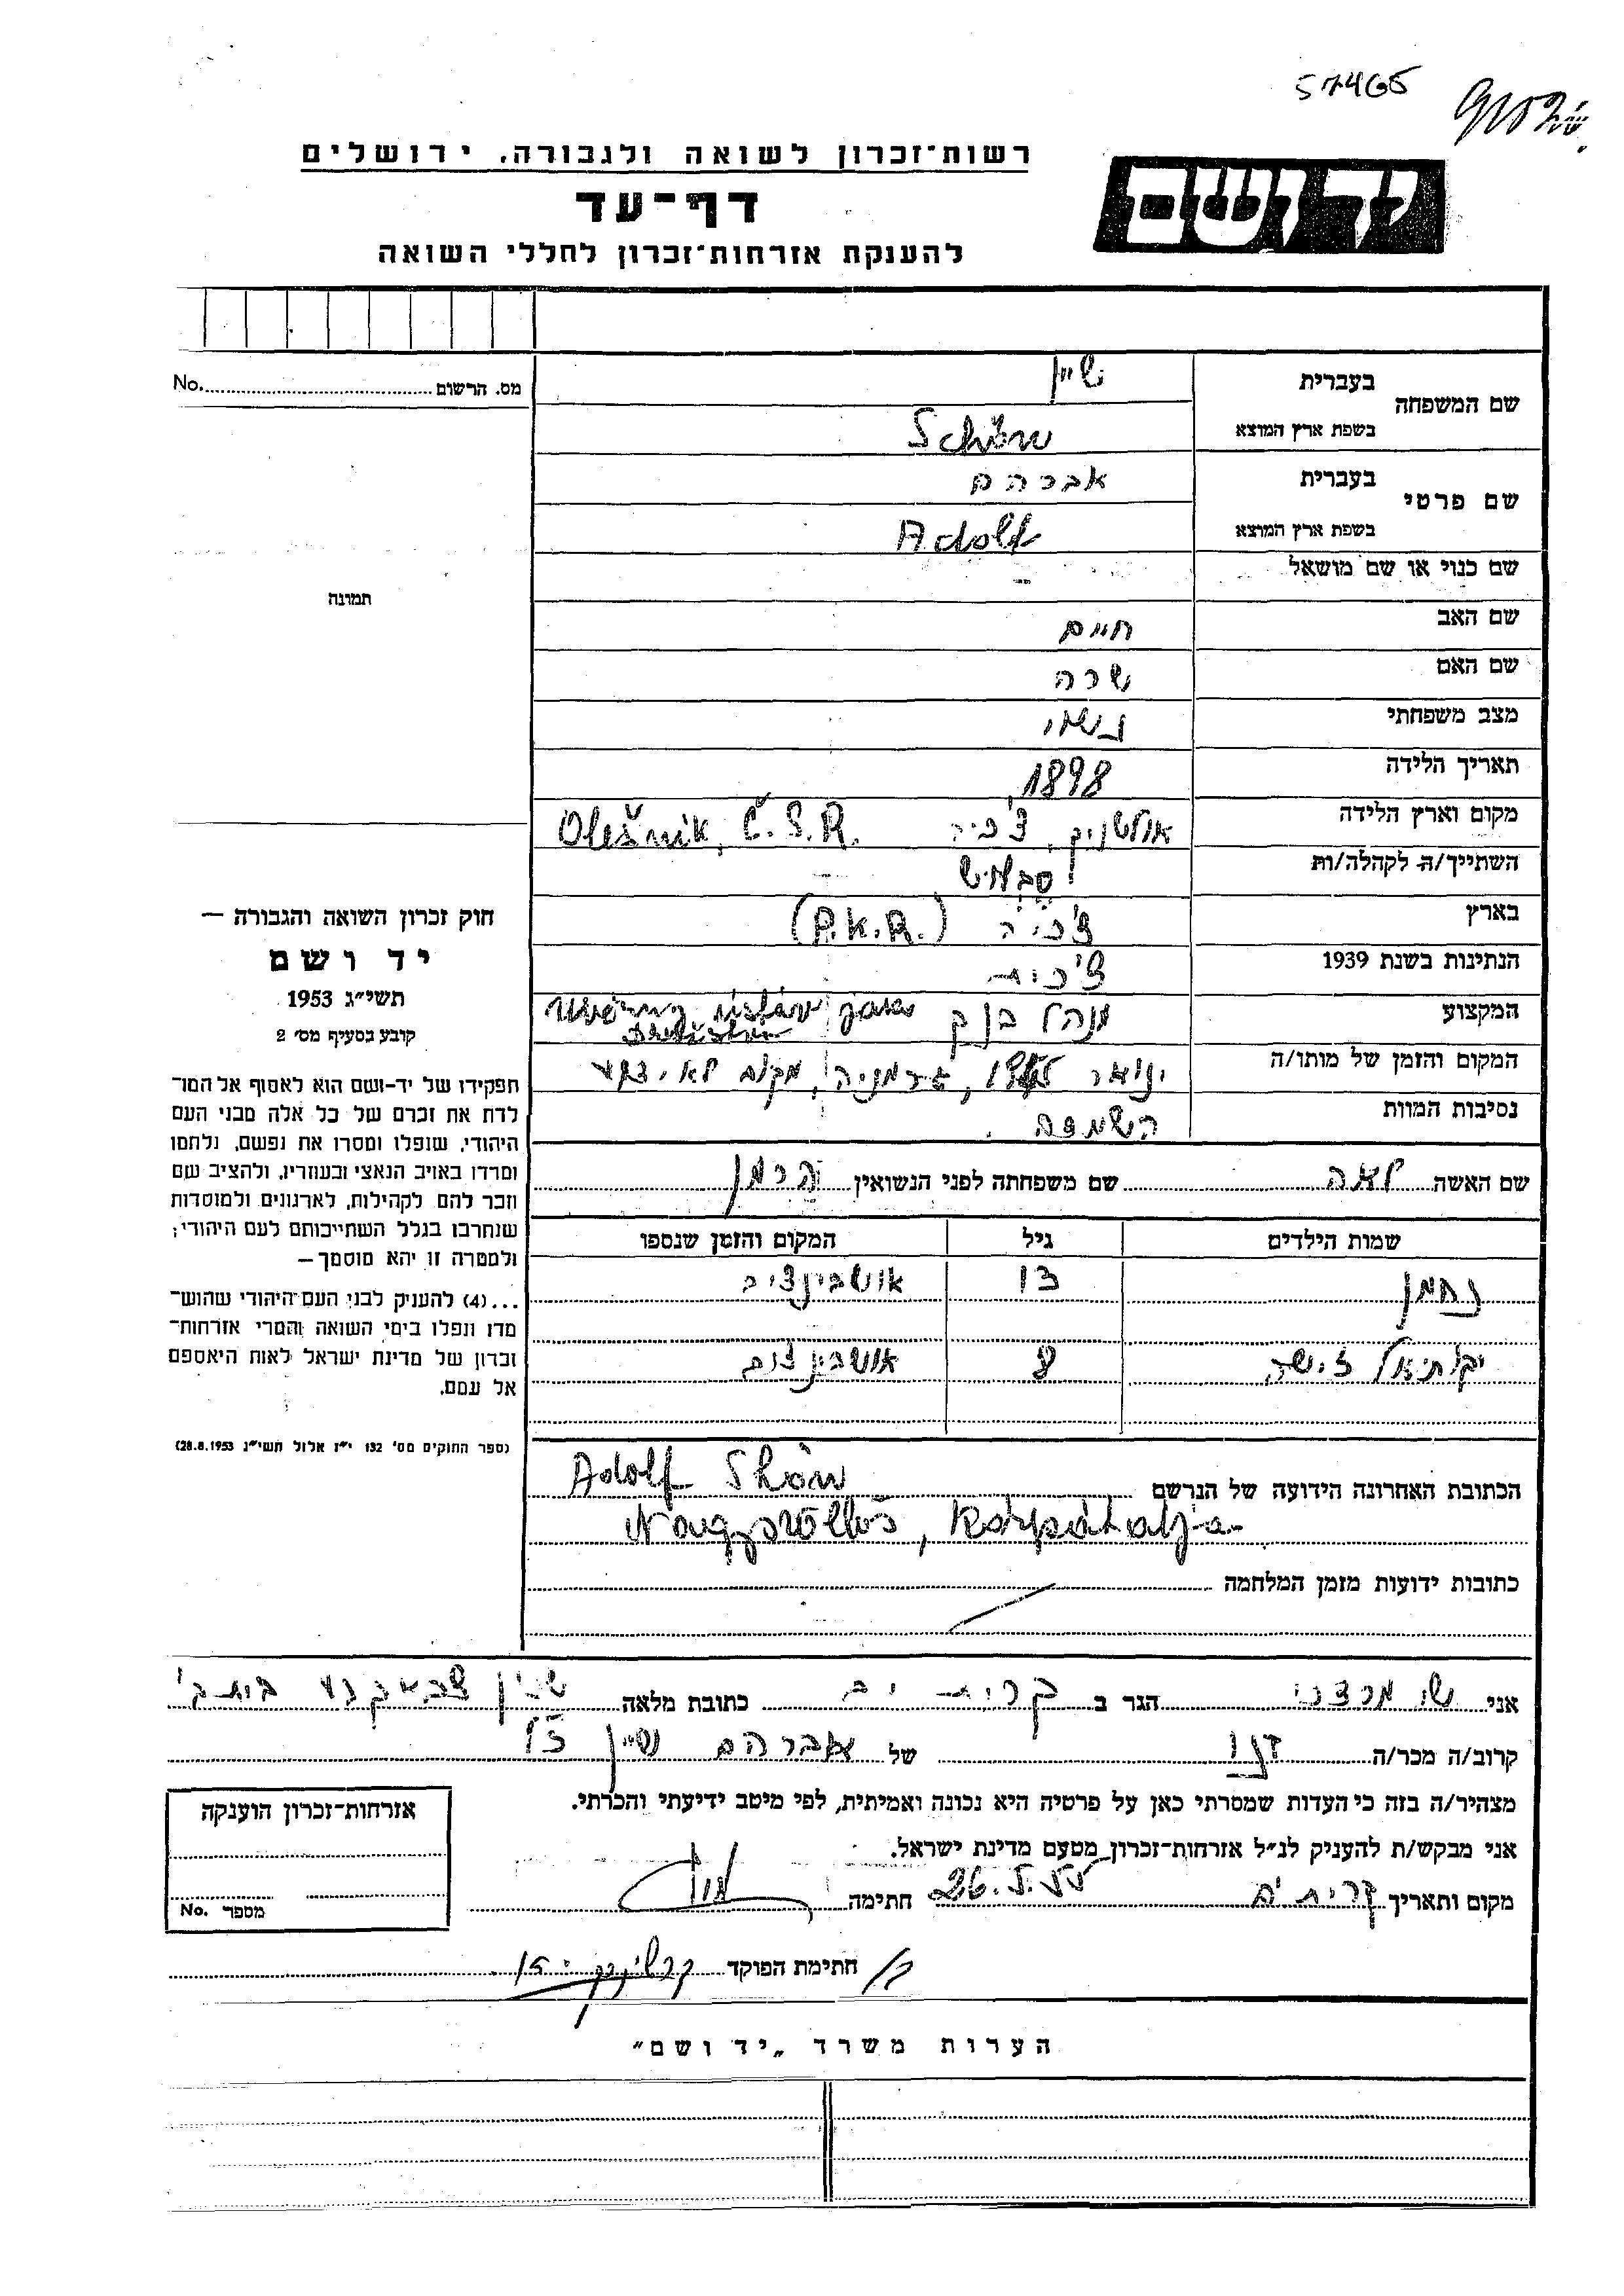 57465
רשות־זכרון לשואה ולגבורה, ירושלים
יד ושם
דף־עד
להענקת אזרחות־זכרון לחללי השואה
מס. הרשום No.
שם המשפחה בעברית שיין
בשפת ארץ המוצא Schön
שם פרטי בעברית אברהם
בשפת ארץ המוצא Adolf
שם כנוי או שם מושאל –
שם האב חיים
שם האם שרה
מצב משפחתי נשוי
תאריך הלידה 1898
מקום וארץ הלידה אולשניק, צ'כיה Olešnik, Č.S.R.
השתייך/ה לקהלה/ות
בארץ צ'כיה (P.K.R.)
הנתינות בשנת 1939 צ'כית
המקצוע מנהל בנק
המקום והזמן של מותו/ה ינואר גרמניה, מקום לא ידוע
נסיבות המוות השמדה.
שם האשה לאה שם משפחתה לפני הנשואין הרמן
שמות הילדים גיל המקום והזמן שנספו
נחמן 13 אושבינצים
יקותיאל זישה 8 אושבינצים
תמונה
חוק זכרון השואה והגבורה —
יד ושם
תשי״ג 1953
קובע בסעיף מס׳ 2
תפקידו של יד־ושם הוא לאסוף אל המו־
לדת את זכרם של כל אלה מבני העם
היהודי, שנפלו ומסרו את נפשם, נלחמו
ומרדו באויב הנאצי ובעוזריו, ולהציב שם
וזכר להם לקהילות, לארגונים ולמוסדות
שנחרבו בגלל השתייכותם לעם היהודי;
ולמטרה זו יהא מוסמך —
...(4) להעניק לבני העם היהודי שהוש־
מדו ונפלו בימי השואה והמרי אזרחות־
זכרון של מדינת ישראל לאות היאספם
אל עמם.
(ספר החוקים מס׳ 132 י״ז אלול תשי״ג 28.8.1953)
הכתובת האחרונה הידועה של הנרשם Adolf Shön
Nagyszöllős, Kárpátalja
כתובות ידועות מזמן המלחמה
אני הגר ב קרית ים כתובת מלאה
קרוב/ה מכר/ה של אברהם שיין ז"ל
מצהיר/ה בזה כי העדות שמסרתי כאן על פרטיה היא נכונה ואמיתית, לפי מיטב ידיעתי והכרתי.
אני מבקש/ת להעניק לנ״ל אזרחות־זכרון מטעם מדינת ישראל.
מקום ותאריך קרית ים 26.5.55 חתימה
חתימת הפוקד
אזרחות־זכרון הוענקה
מספר No.
הערות משרד „יד ושם״